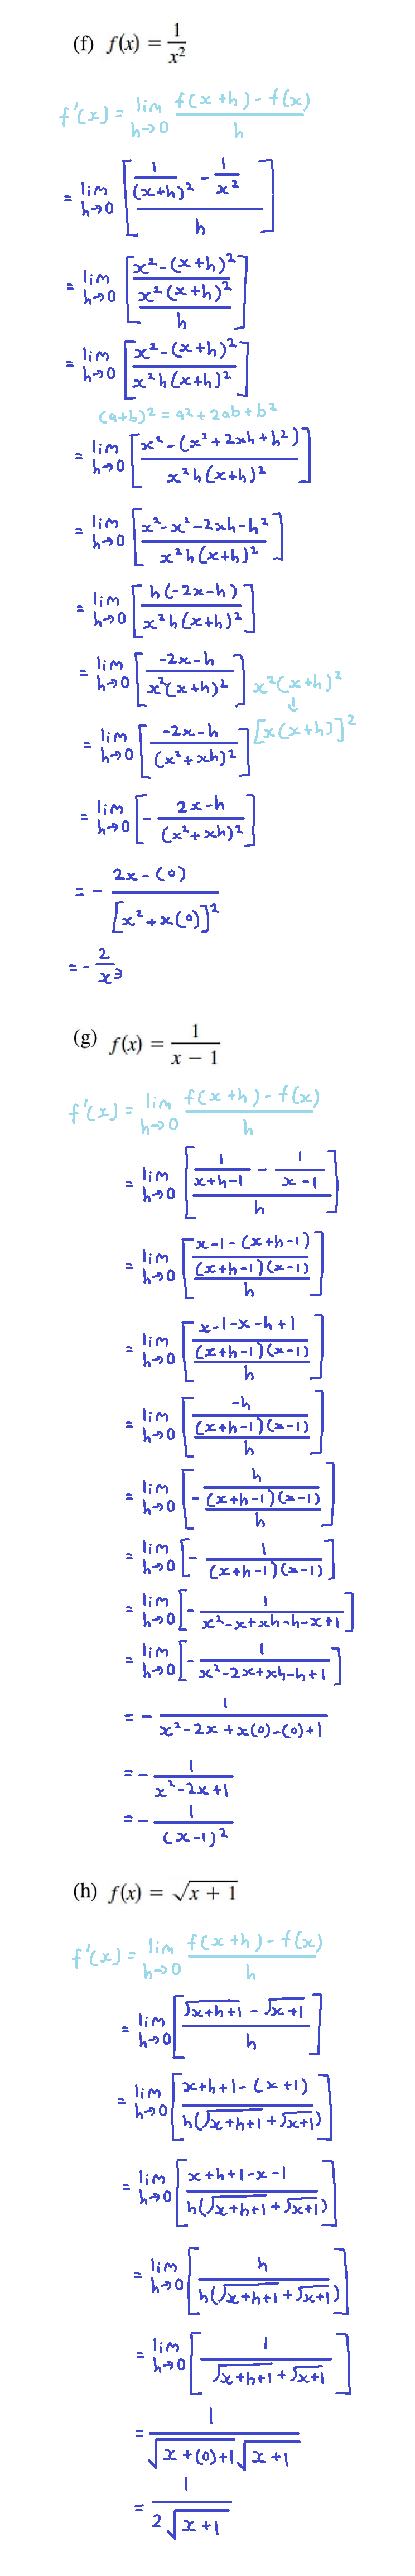 (f) f(x) = 1/x²
f'(x) = lim h→0 (f(x+h) - f(x))/h
= lim h→0 [(1/(x+h)² - 1/x²)/h]
= lim h→0 [((x²-(x+h)²)/(x²(x+h)²))/h]
= lim h→0 [(x²-(x+h)²)/(x²h(x+h)²)]
(a+b)² = a²+2ab+b²
= lim h→0 [(x²-(x²+2xh+h²))/(x²h(x+h)²)]
= lim h→0 [(x²-x²-2xh-h²)/(x²h(x+h)²)]
= lim h→0 [(h(-2x-h))/(x²h(x+h)²)]
= lim h→0 [(-2x-h)/(x²(x+h)²)] x²(x+h)²
↓
= lim h→0 [(-2x-h)/(x²+xh)²] [x(x+h)]²
= lim h→0 [- (2x-h)/(x²+xh)²]
= - (2x-(0))/[x²+x(0)]²
= - 2/x³
(g) f(x) = 1/(x - 1)
f'(x) = lim h→0 (f(x+h) - f(x))/h
= lim h→0 [(1/(x+h-1) - 1/(x-1))/h]
= lim h→0 [((x-1-(x+h-1))/((x+h-1)(x-1)))/h]
= lim h→0 [((x-1-x-h+1)/((x+h-1)(x-1)))/h]
= lim h→0 [(-h/((x+h-1)(x-1)))/h]
= lim h→0 [- (h/((x+h-1)(x-1)))/h]
= lim h→0 [- 1/((x+h-1)(x-1))]
= lim h→0 [- 1/(x²-x+xh-h-x+1)]
= lim h→0 [- 1/(x²-2x+xh-h+1)]
= - 1/(x²-2x+x(0)-(0)+1)
= - 1/(x²-2x+1)
= - 1/(x-1)²
(h) f(x) = √(x + 1)
f'(x) = lim h→0 (f(x+h) - f(x))/h
= lim h→0 [(√(x+h+1) - √(x+1))/h]
= lim h→0 [(x+h+1-(x+1))/(h(√(x+h+1)+√(x+1)))]
= lim h→0 [(x+h+1-x-1)/(h(√(x+h+1)+√(x+1)))]
= lim h→0 [h/(h(√(x+h+1)+√(x+1)))]
= lim h→0 [1/(√(x+h+1)+√(x+1))]
= 1/(√(x+(0)+1)√(x+1))
= 1/(2√(x+1))